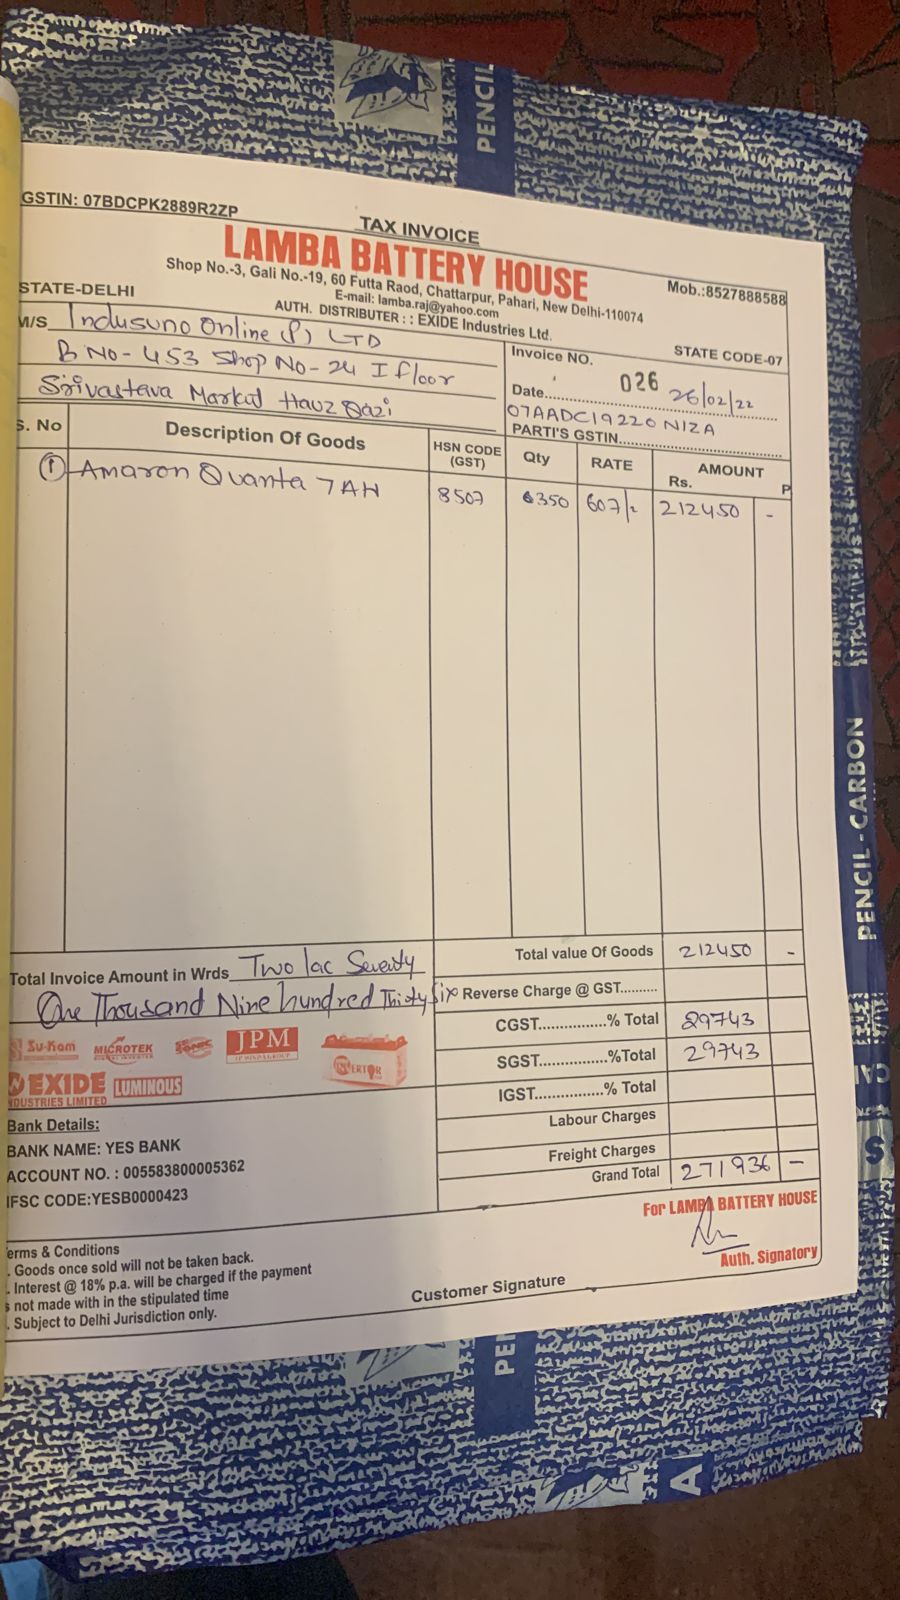 PENCIL
GSTIN: 07BDCPK2889R2ZP
TAX INVOICE
LAMBA BATTERY HOUSE
Mob.:8527888588
Shop No.-3, Gali No.-19, 60 Futta Raod, Chattarpur, Pahari, New Delhi-110074
E-mail: lamba.raj@yahoo.com
STATE-DELHI
AUTH. DISTRIBUTER : : EXIDE Industries Ltd.
STATE CODE-07
M/S Indusuno Online (P) LTD
B NO- 453 Shop No- 24 I floor
Srivastava Market Hauz Qazi
Invoice NO. 026
Date 26/02/22
07AADCI9220N1ZA
PARTI'S GSTIN
S. No Description Of Goods HSN CODE (GST) Qty RATE AMOUNT
Rs. P
① Amaron Quanta 7AH 8507 350 607/- 212450 -
Total value Of Goods 212450 -
Total Invoice Amount in Wrds Two lac Seventy
One Thousand Nine hundred Thirty six
Reverse Charge @ GST..........
CGST...............% Total 29743
SGST...............%Total 29743
IGST................% Total
Labour Charges
Freight Charges
Grand Total 271936 -
Su-Kam MICROTEK SONIC JPM INVERTOR
EXIDE INDUSTRIES LIMITED LUMINOUS
Bank Details:
BANK NAME: YES BANK
ACCOUNT NO. : 005583800005362
IFSC CODE:YESB0000423
For LAMBA BATTERY HOUSE
Auth. Signatory
Customer Signature
erms & Conditions
. Goods once sold will not be taken back.
. Interest @ 18% p.a. will be charged if the payment
s not made with in the stipulated time
. Subject to Delhi Jurisdiction only.
PENCIL - CARBON
PEN
S
A